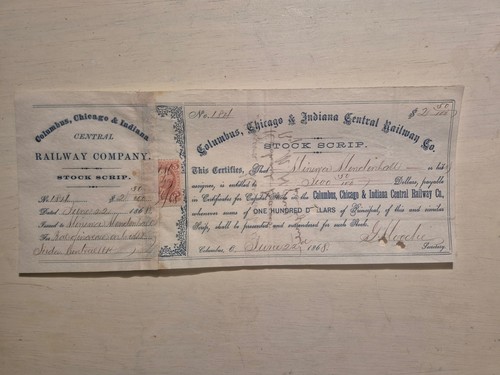 Columbus, Chicago & Indiana
CENTRAL
RAILWAY COMPANY.
STOCK SCRIP.
$2 50/100
Dated June 22 1868
Issued to
For
No.
$2 50/100
Columbus, Chicago & Indiana Central Railway Co.
STOCK SCRIP.
This Certifies, That Mendenhall or his
assigns, is entitled to Two 50/100 Dollars, payable
in Certificates for Capital Stock in the Columbus, Chicago & Indiana Central Railway Co.,
whenever sums of ONE HUNDRED DOLLARS of Principal, of this and similar
Scrip, shall be presented and surrendered for such Stock.
Columbus, O. June 22 1868.
Secretary.